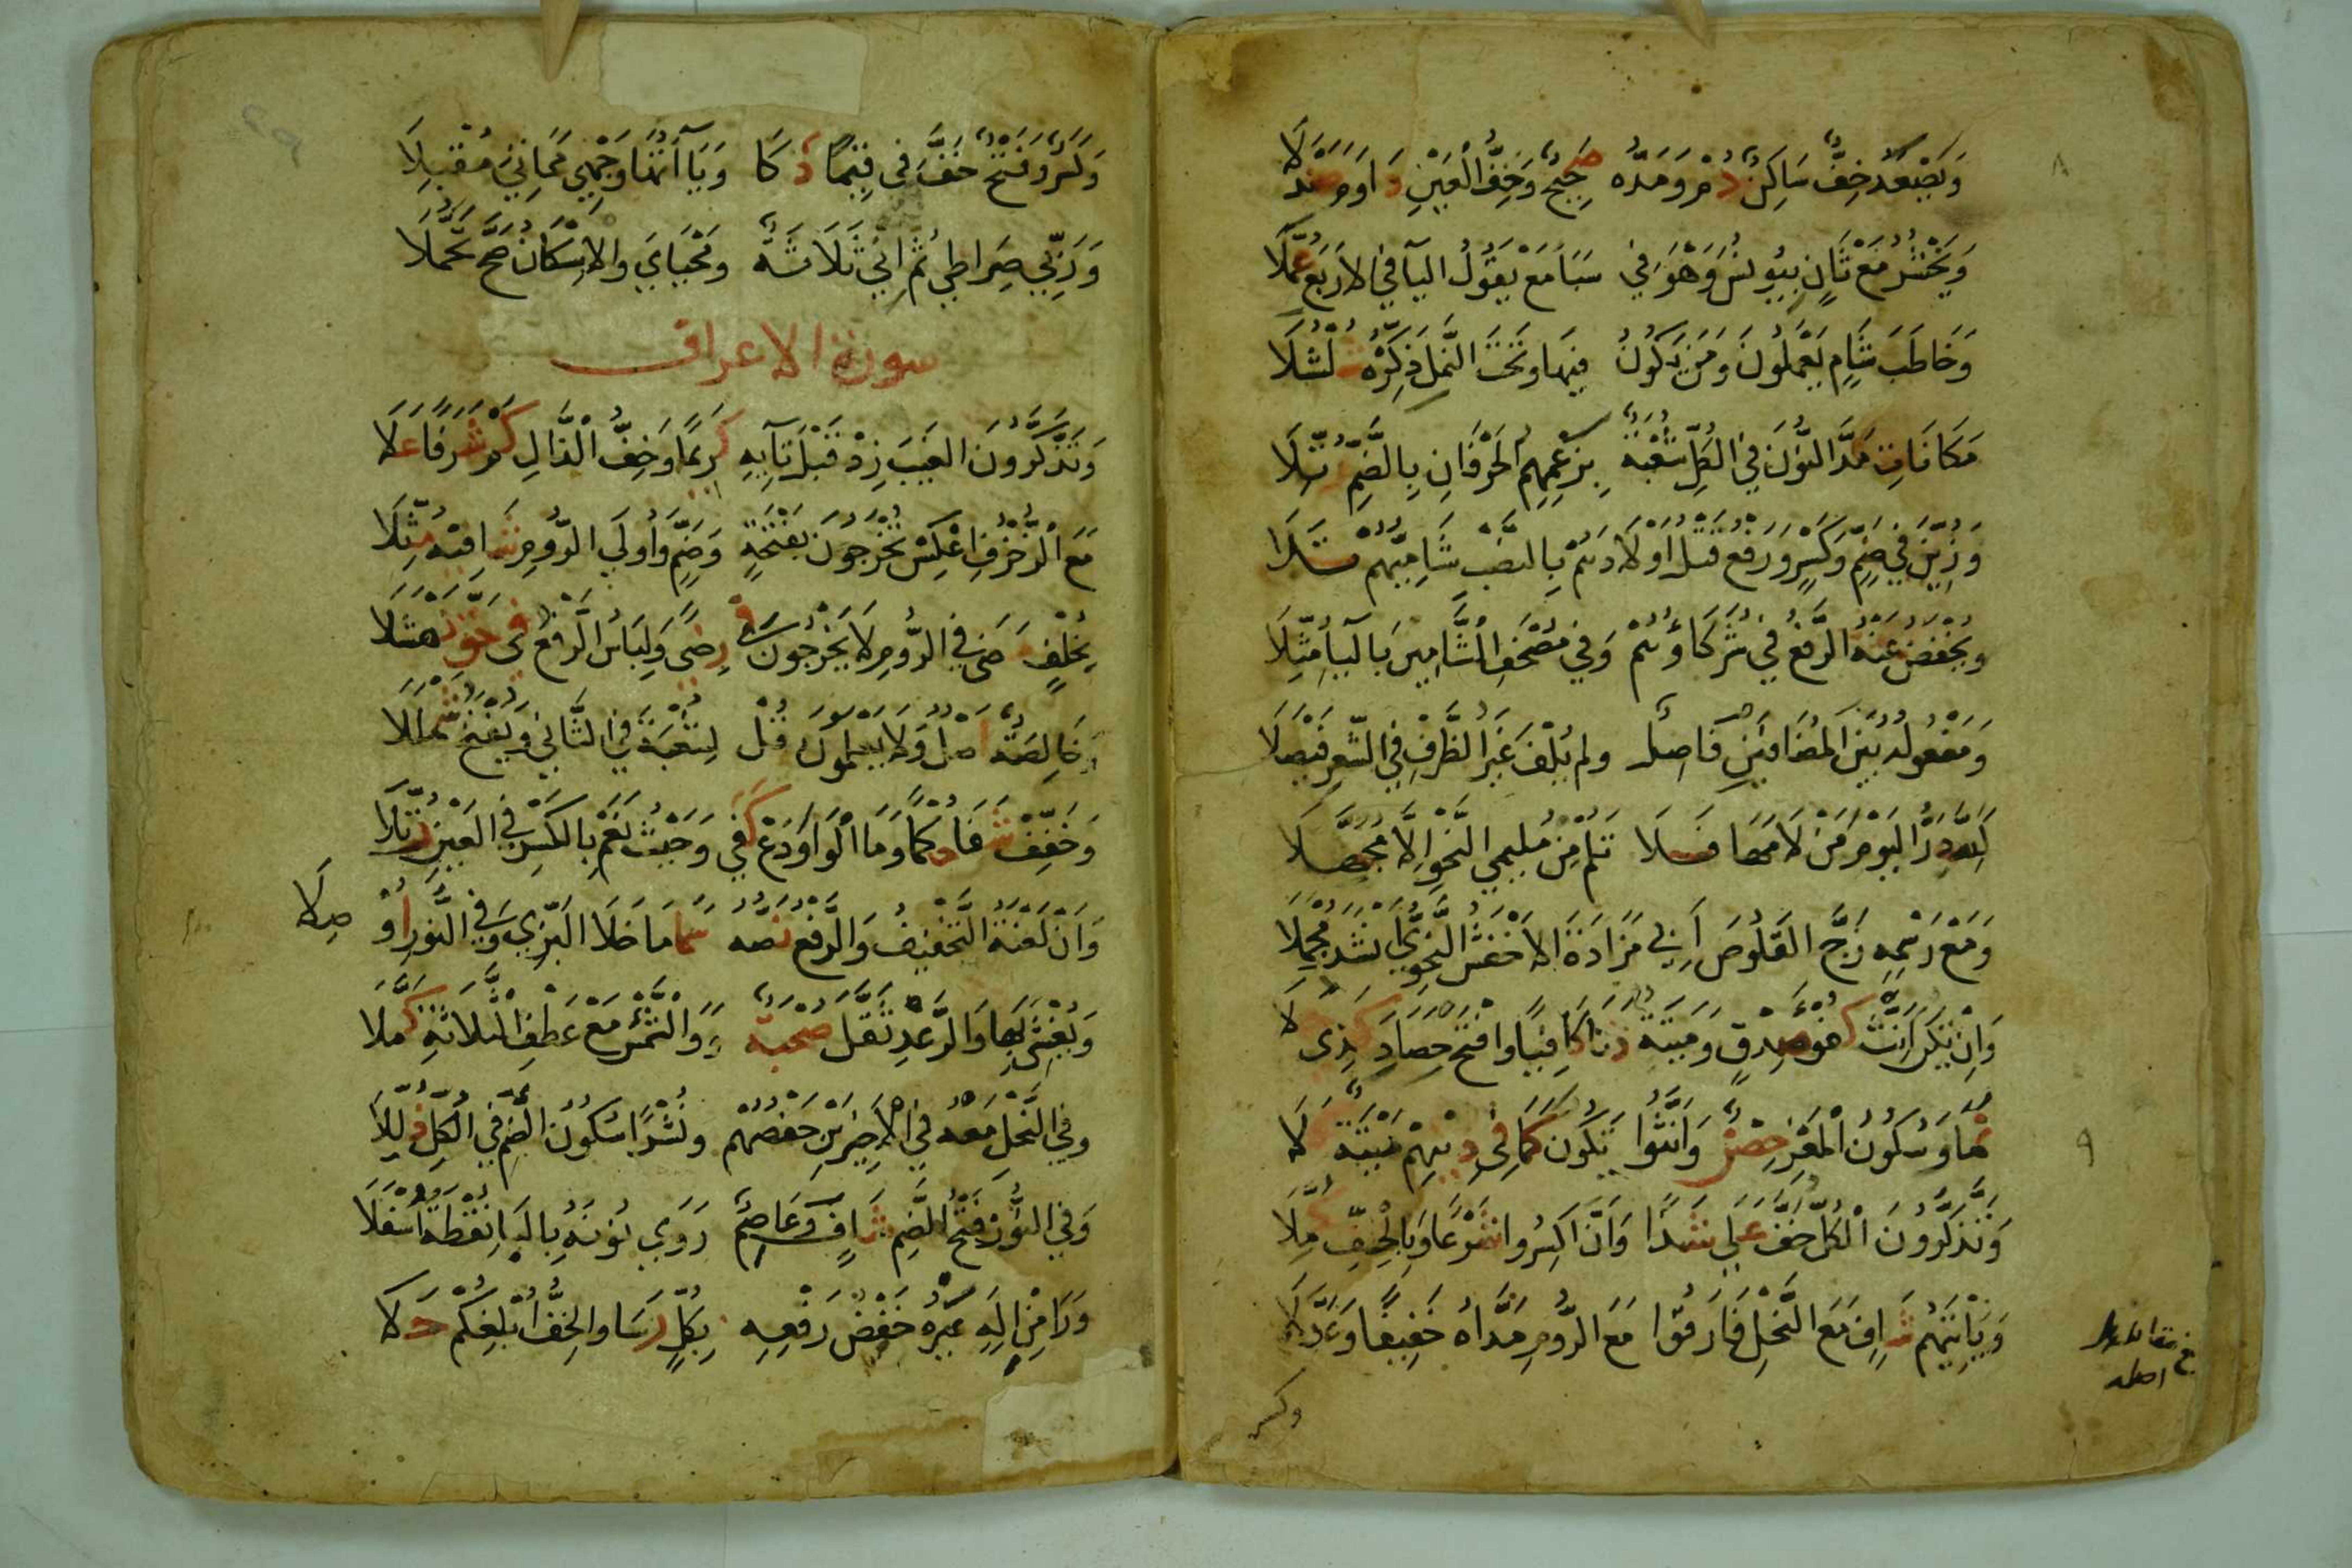 وَيَصْعَدُ خِفٌّ سَاكِنٌ دُمْ وَمَدُّهُ صَحِيحٌ وَخِفُّ الْعَيْنِ دَاوَمَ صَنْدَلَا
وَيَحْشُرُ مَعْ ثَانٍ بِيُونُسَ وَهْوَ فِي سَبَأ مَعْ يَقُولُ اليَا فِي الاَرْبَعِ عُمِّلَا
وَخَاطَبَ شَامٍ يَعْمَلُونَ وَمَنْ يَكُونُ فِيهَا وَتَحْتَ النَّمْلِ ذَكِّرْهُ شُلْشُلَا
مَكَانَاتِ مَدَّ النُّونَ فِي الْكُلِّ شُعْبَةٌ بِزَعْمِهِمُ الْحَرْفَانِ بِالضَّمِّ رُتِّلَا
وَزَيَّنَ فِي ضَمٍّ وَكَسْرٍ وَرَفْعُ قَتْلَ اَوْلَادَهُمْ بِالنَّصْبِ شَامِيُّهُمْ تَلَا
وَيُخْفَضُ عَنْهُ الرَّفْعُ فِي شُرَكَاؤُهُمْ وَفِي مُصْحَفِ الشَّامِينَ بِاليَاءِ مُثِّلَا
وَمَفْعُولُهُ بَيْنَ الْمُضَافَيْنِ فَاصِلٌ وَلَمْ يُلْفَ غَيْرُ الظَّرْفِ فِي الشِّعْرِ فَيْصَلَا
كَلِلَّهِ دَرُّ الْيَوْمَ مَنْ لَامَهَا فَلَا تَلُمْ مِنْ مُلِيمِي النَّحْوِ إِلَّا مُجَهِّلَا
وَمَعْ رَسْمِهِ زَجَّ الْقَلُوصَ أَبِي مَزَادَةَ الاَخْفَشُ النَّحْوِيُّ أَنْشَدَ مُجْمِلَا
وَإِنْ تَكُنْ اَنِّثْ كُفْؤَ صِدْقٍ وَمَيْتَةٌ دَنَا كَافِيًا وَافْتَحْ حِصَادَ كَذِي حُلَا
نَمَا وَسُكُونُ الْمَعْزِ حِصْنٌ وَأَنَّثُوا تَكُونُ كَمَا فِي دِينِهِمْ مَيْتَةٌ كَلَا
وَتَذَّكَّرُونَ الْكُلُّ خَفَّ عَلَى شَذًا وَأَنَّ اكْسِرُوا شَرْعًا وَبِالْخِفِّ كُمِّلَا
وَيَأْتِيَهُمْ شَافٍ مَعَ النَّحْلِ فَارَقُوا مَعَ الرُّومِ مَدَّاهُ خَفِيفًا وَعَدَّلَا
وكسر
وَكَسْرٌ وَفَتْحٌ خَفَّ فِي قِيَمًا ذَكَا وَيَاآتُهَا وَجْهِي مَمَاتِيَ مُقْبِلَا
وَرَبِّي صِرَاطِي ثُمَّ إِنِّي ثَلَاثَةٌ وَمَحْيَايَ وَالاِسْكَانُ صَحَّ تَحَمُّلَا
سورة الاعراف
وَتَذَّكَّرُونَ الْغَيْبَ زِدْ قَبْلَ تَائِهِ كَرِيمًا وَخِفُّ الذَّالِ كَمْ شَرَفًا عَلَا
مَعَ الزُّخْرُفِ اعْكِسْ تُخْرَجُونَ بِفَتْحَةٍ وَضَمٍّ وَأُولَى الرُّومِ شَافِيهِ مُثِّلَا
بِخُلْفٍ مَضَى فِي الرُّومِ لَا يَخْرُجُونَ فِي رِضًى وَلِبَاسُ الرَّفْعُ فِي حَقِّ نَهْشَلَا
وَخَالِصَةٌ أَصْلٌ وَلَا يَعْلَمُونَ قُلْ لِشُعْبَةَ فِي الثَّانِي وَيُفْتَحُ شَمْلَلَا
وَخَفِّفْ شَفَا حُكْمًا وَمَا الْوَاوَ دَعْ كَفَى وَحَيْثُ نَعَمْ بِالْكَسْرِ فِي الْعَيْنِ رُتِّلَا
وَأَنْ لَعْنَةُ التَّخْفِيفُ وَالرَّفْعُ نَصُّهُ سَمَا مَا خَلَا الْبَزِّي وَفِي النُّورِ أُوصِلَا
وَيُغْشِي بِهَا وَالرَّعْدِ ثَقَّلَ صُحْبَةٌ وَوَالشَّمْسُ مَعْ عَطْفِ الثَّلَاثَةِ كَمَّلَا
وَفِي النَّحْلِ مَعْهُ فِي الاَخِيرَيْنِ حَفْصُهُمْ وَنُشْرًا سُكُونُ الضَّمِّ فِي الْكُلِّ ذُلِّلَا
وَفِي النُّونِ فَتْحُ الضَّمِّ شَافٍ وَعَاصِمٌ رَوَى نُونَهُ بِالْبَاءِ نُقْطَةٌ اسْفَلَا
وَرَا مِنْ إِلَهٍ غَيْرُهُ خَفْضُ رَفْعِهِ بِكُلٍّ رَسَا وَالْخِفُّ أُبْلِغُكُمْ حَلَا